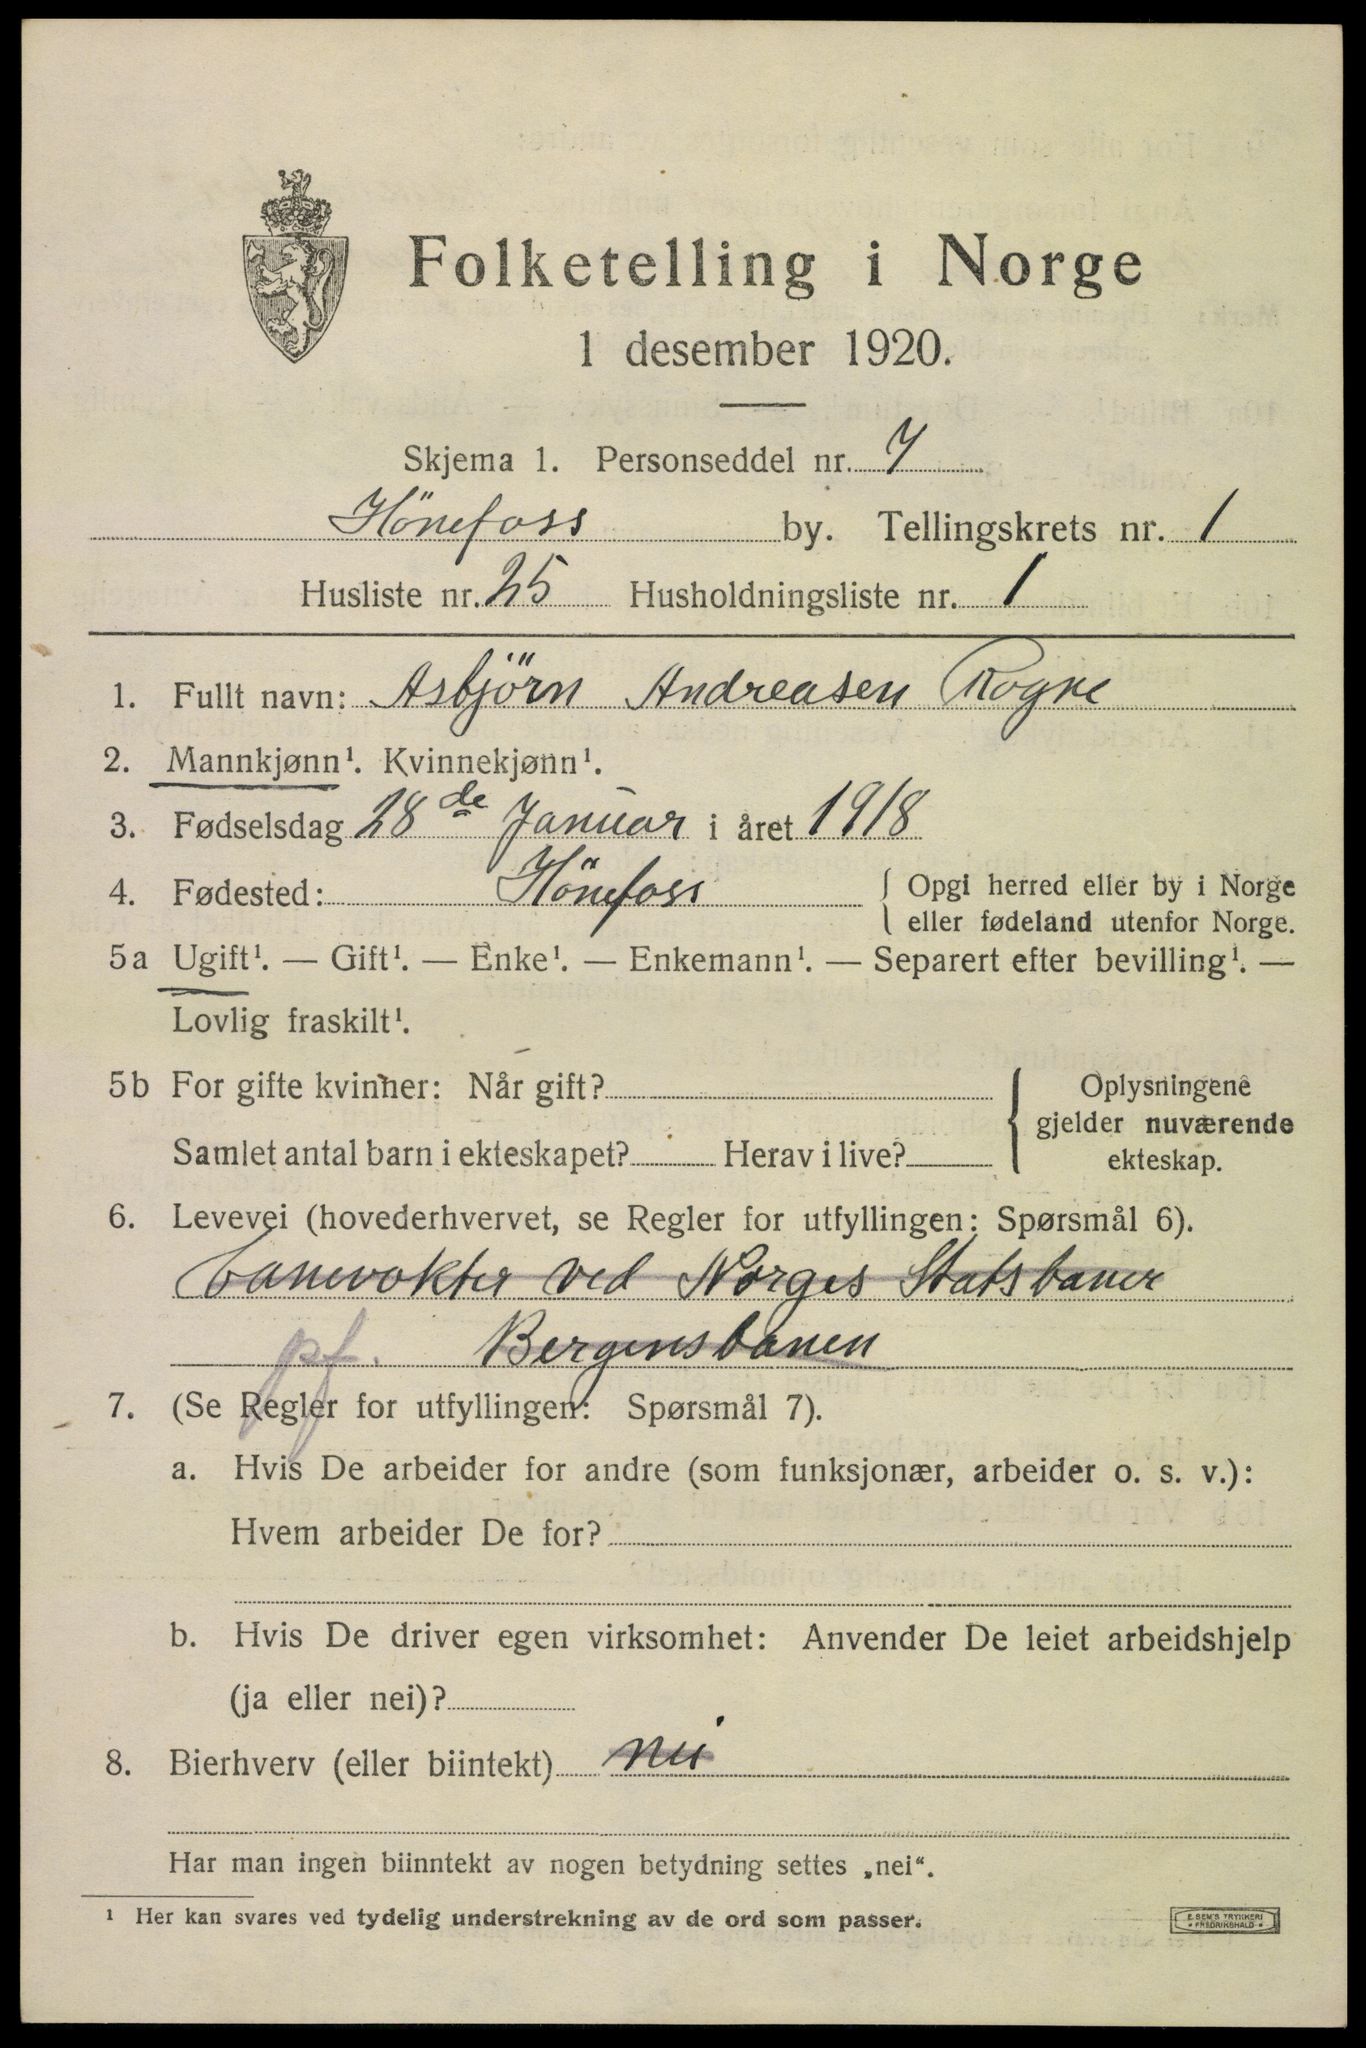 Folketelling i Norge
1 desember 1920.
Skjema 1. Personseddel nr. 7
Hönefoss by. Tellingskrets nr. 1
Husliste nr. 25 Husholdningsliste nr. 1
1. Fullt navn: Asbjörn Andreasen Rogne
2. Mannkjønn¹. Kvinnekjønn¹.
3. Fødselsdag 28de Januar i året 1918
4. Fødested: Hönefoss { Opgi herred eller by i Norge
eller fødeland utenfor Norge.
5a Ugift¹. — Gift¹. — Enke¹. — Enkemann¹. — Separert efter bevilling¹. —
Lovlig fraskilt¹.
5b For gifte kvinner: Når gift? { Oplysningene
gjelder nuværende
Samlet antal barn i ekteskapet? Herav i live? ekteskap.
6. Levevei (hovederhvervet, se Regler for utfyllingen: Spørsmål 6).
banevokter ved Norges Statsbaner
pf. Bergensbanen
7. (Se Regler for utfyllingen: Spørsmål 7).
a. Hvis De arbeider for andre (som funksjonær, arbeider o. s. v.):
Hvem arbeider De for?
b. Hvis De driver egen virksomhet: Anvender De leiet arbeidshjelp
(ja eller nei)?
8. Bierhverv (eller biintekt) nei
Har man ingen biinntekt av nogen betydning settes „nei“.
¹ Her kan svares ved tydelig understrekning av de ord som passer.
E. SEM'S TRYKKERI
FREDRIKSHALD